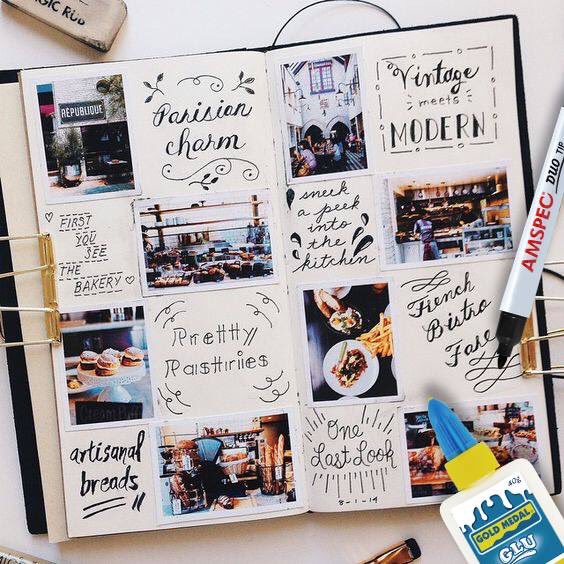 GIC RUB
RÉPUBLIQUE
Parisian
charm
FIRST
YOU
SEE
THE
BAKERY
Pretty
Pastries
Cream Puff
artisanal
breads
Vintage
meets
MODERN
sneek
a peek
into
the
kitchen
French
Bistro
Fare
One
Last Look
8-1-19
AMSPEC DUO TIP
40g
GOLD MEDAL
GLU